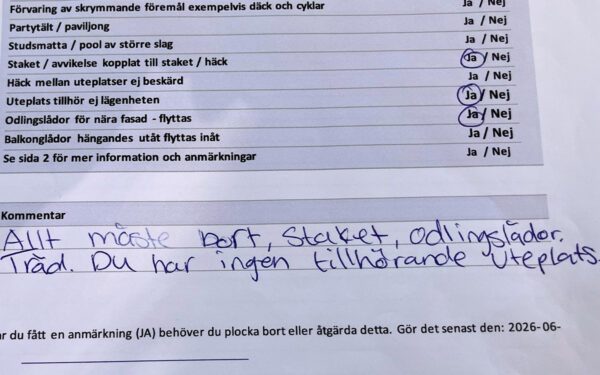 Förvaring av skrymmande föremål exempelvis däck och cyklar Ja / Nej
Partytält / paviljong Ja / Nej
Studsmatta / pool av större slag Ja / Nej
Staket / avvikelse kopplat till staket / häck Ja / Nej
Häck mellan uteplatser ej beskärd Ja / Nej
Uteplats tillhör ej lägenheten Ja / Nej
Odlingslådor för nära fasad - flyttas Ja / Nej
Balkonglådor hängandes utåt flyttas inåt Ja / Nej
Se sida 2 för mer information och anmärkningar Ja / Nej
Kommentar
Allt måste bort, staket, odlingslådor.
Träd. Du har ingen tillhörande uteplats.
ar du fått en anmärkning (JA) behöver du plocka bort eller åtgärda detta. Gör det senast den: 2026-06-